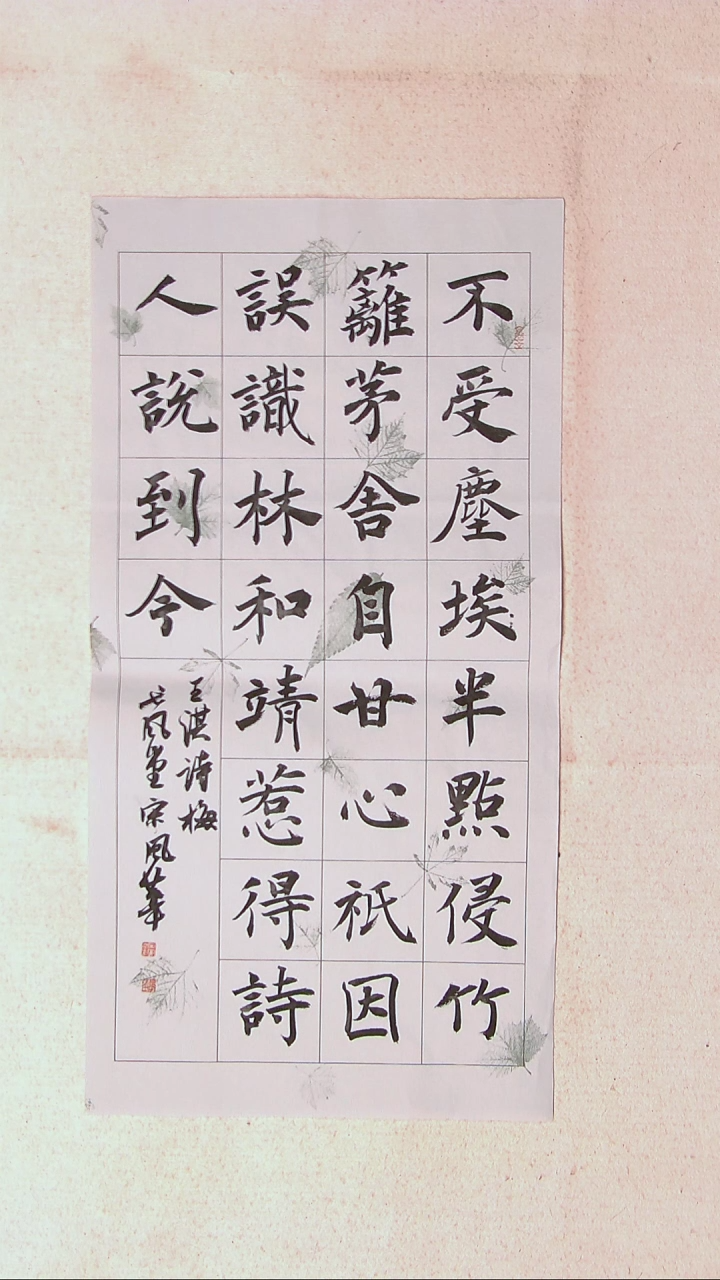 不受塵埃半點侵竹
籬茅舍自甘心祗因
誤識林和靖惹得詩
人說到今
王淇詩梅
堂宗風華